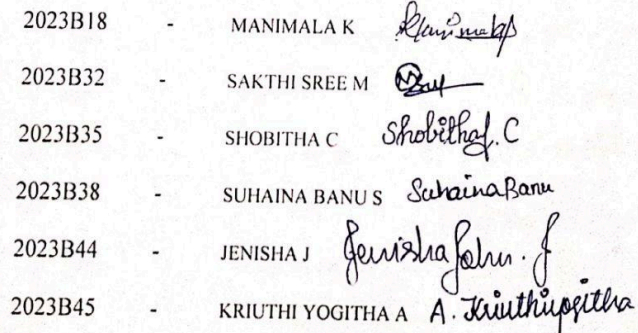 2023B18 - MANIMALA K Manimala
2023B32 - SAKTHI SREE M
2023B35 - SHOBITHA C Shobitha. C
2023B38 - SUHAINA BANU S Suhaina Banu
2023B44 - JENISHA J Jenisha John. J
2023B45 - KRIUTHI YOGITHA A A. Kriuthiyogitha